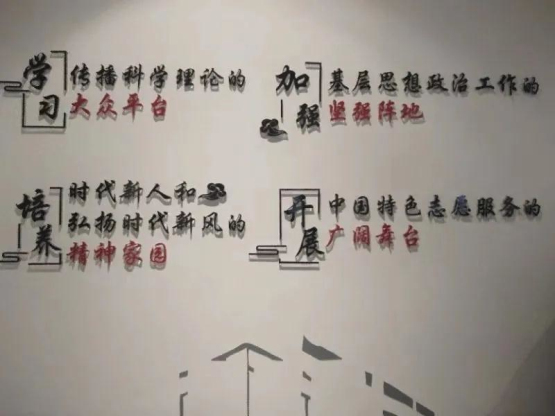 学习
传播科学理论的
大众平台
加强
基层思想政治工作的
坚强阵地
培养
时代新人和
弘扬时代新风的
精神家园
开展
中国特色志愿服务的
广阔舞台